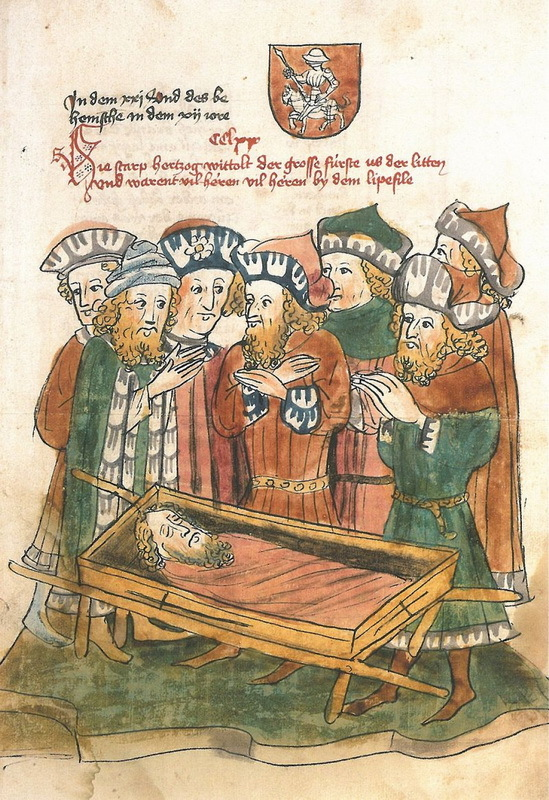 In dem xxj des be
hemsche in dem xij iore
CClxx
Hie starp hertzog wittolt der grosse fürste us der litten
vnd warent vil heren vil heren by dem lipefile